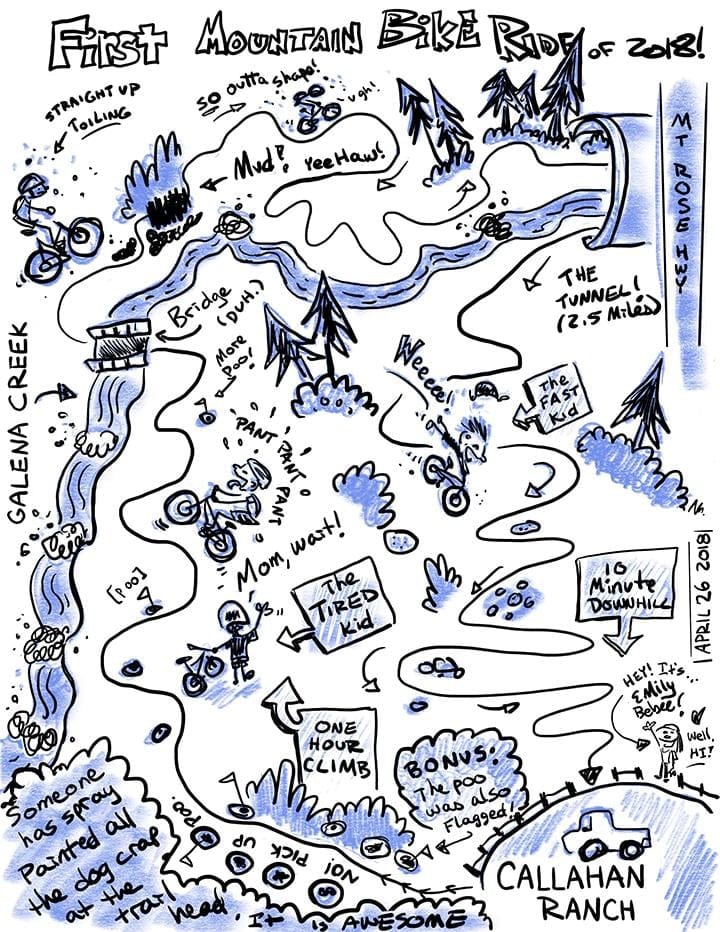 First Mountain Bike Ride of 2018!
STRAIGHT UP
TOILING
SO outta shape!
ugh!
Mud? YeeHaw!
MT ROSE HWY
THE
TUNNEL!
(2.5 Miles)
Bridge
(DUH.)
More
Poo!
GALENA CREEK
Weeeee!
The
FAST
Kid
PANT PANT PANT PANT
Mom, wait!
The
TIRED
Kid
[POO]
10
Minute
DOWNHILL
APRIL 26 2018
HEY! It's...
Emily
Bebee!
Well,
HI!
ONE
HOUR
CLIMB
BONUS:
The poo
was also
Flagged!
Someone
has spray
Painted all
the dog crap
at the
trail head.
It is AWESOME
POO!
NO! PICK UP
CALLAHAN
RANCH